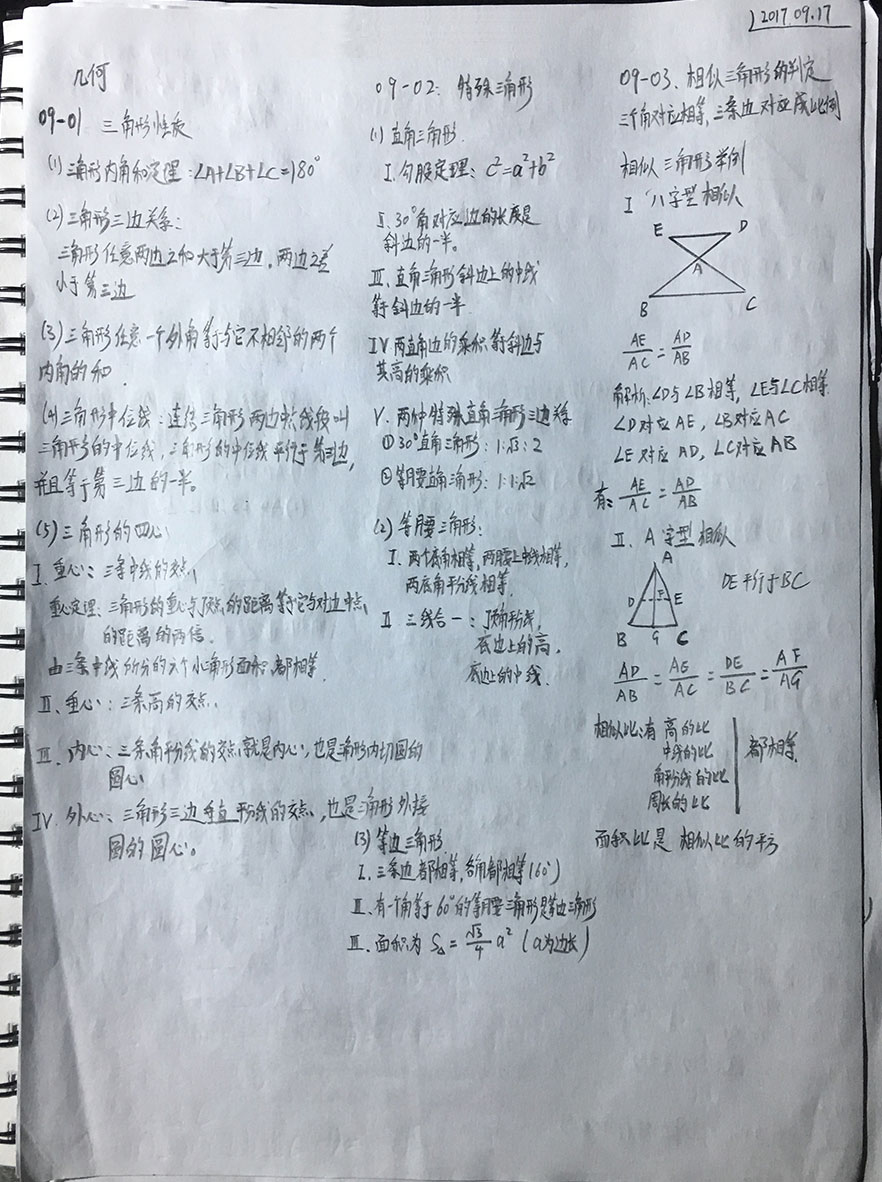 2017.09.17
几何
09-01 三角形性质
(1) 三角形内角和定理：∠A+∠B+∠C=180°
(2) 三角形三边关系：
三角形任意两边之和大于第三边，两边之差
小于第三边
(3) 三角形任意一个外角等于与它不相邻的两个
内角的和.
(4) 三角形中位线：连结三角形两边中点线段叫
三角形的中位线，三角形的中位线平行于第三边，
并且等于第三边的一半。
(5) 三角形的四心
I. 重心：三条中线的交点
重心定理：三角形的重心与顶点的距离等于它与对边中点
的距离的两倍.
由三条中线所分的六个小三角形面积都相等.
II、垂心：三条高的交点.
III. 内心：三条角平分线的交点就是内心，也是三角形内切圆的
圆心
IV. 外心：三角形三边垂直平分线的交点，也是三角形外接
圆的圆心。
09-02：特殊三角形
(1) 直角三角形.
I. 勾股定理：c²=a²+b²
II. 30°角对应边的长度是
斜边的一半。
III、直角三角形斜边上的中线
等于斜边的一半
IV 两直角边的乘积等于斜边与
其高的乘积
V. 两种特殊直角三角形三边关系
① 30°直角三角形：1:√3:2
② 等腰直角三角形：1:1:√2
(2) 等腰三角形：
I、两个底角相等，两腰上中线相等，
两底角平分线相等.
II 三线合一：顶角平分线，
底边上的高，
底边上的中线.
(3) 等边三角形
I. 三条边都相等，各角都相等(60°)
II、有一个角等于60°的等腰三角形是等边三角形
III. 面积为 S△ = √3/4 a² (a为边长)
09-03、相似三角形的判定
三个角对应相等，三条边对应成比例
相似三角形举例
I 八字型相似
E D
A
B C
AE/AC = AD/AB
解析：∠D与∠B相等，∠E与∠C相等.
∠D对应AE，∠B对应AC
∠E对应AD，∠C对应AB
有：AE/AC = AD/AB
II、A字型相似
A
D F E
B G C
DE平行于BC
AD/AB = AE/AC = DE/BC = AF/AG
相似比：有 高的比
中线的比
角平分线的比
周长的比
都相等.
面积比是相似比的平方